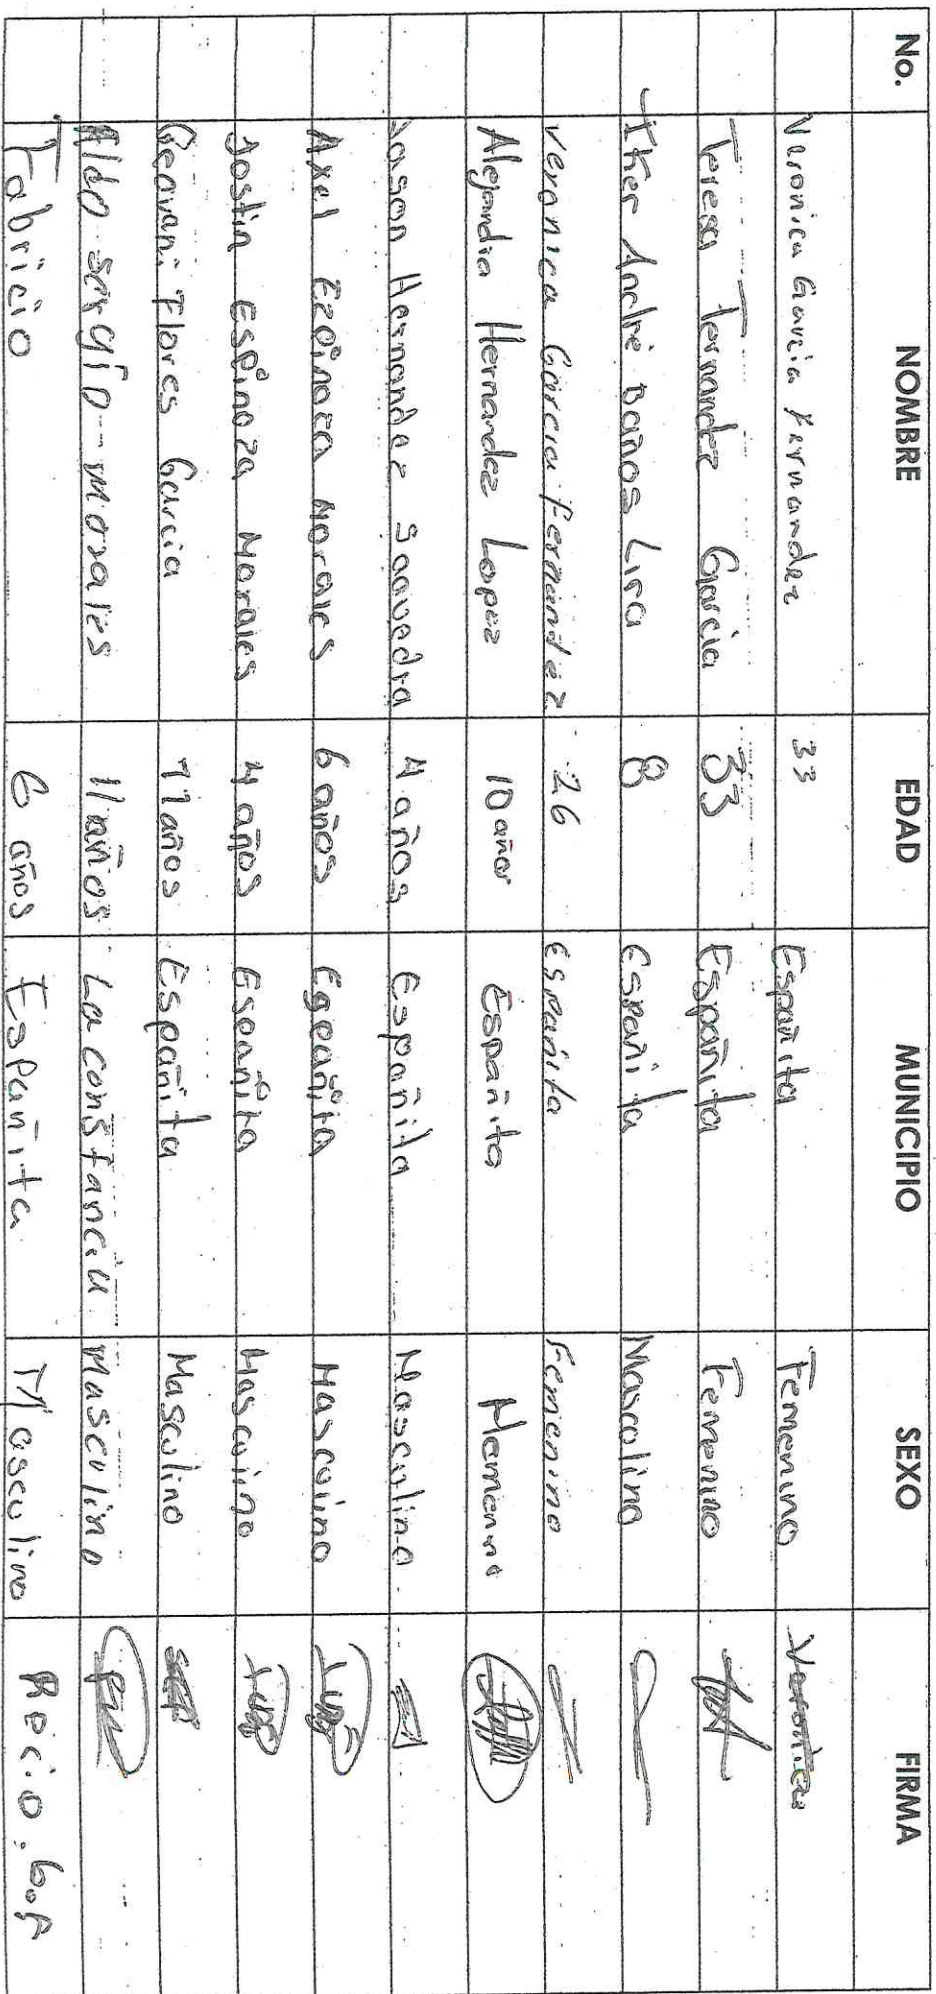 No. NOMBRE EDAD MUNICIPIO SEXO FIRMA
Veronica Garcia Fernandez 33 Españita Femenino Veronica
Teresa Fernandez Garcia 33 Españita Femenino
Iker André Baños Lira 8 Españita Masculino
Veronica Garcia Fernandez 26 Españita Femenino
Alejandra Hernandez Lopez 10 años Españita Memenino
Jason Hernandez Saavedra 4 años Españita Masculino
Axel Ezpinoza Morales 6 años Españita Masculino
Jostin Espinoza Morales 4 años Españita Masculino
Geovani Flores Garcia 11 años Españita Masculino
Aldo Sergio Morales 11 años La constancia Masculino
Fabricio 6 años Españita Masculino Rocio. G.F